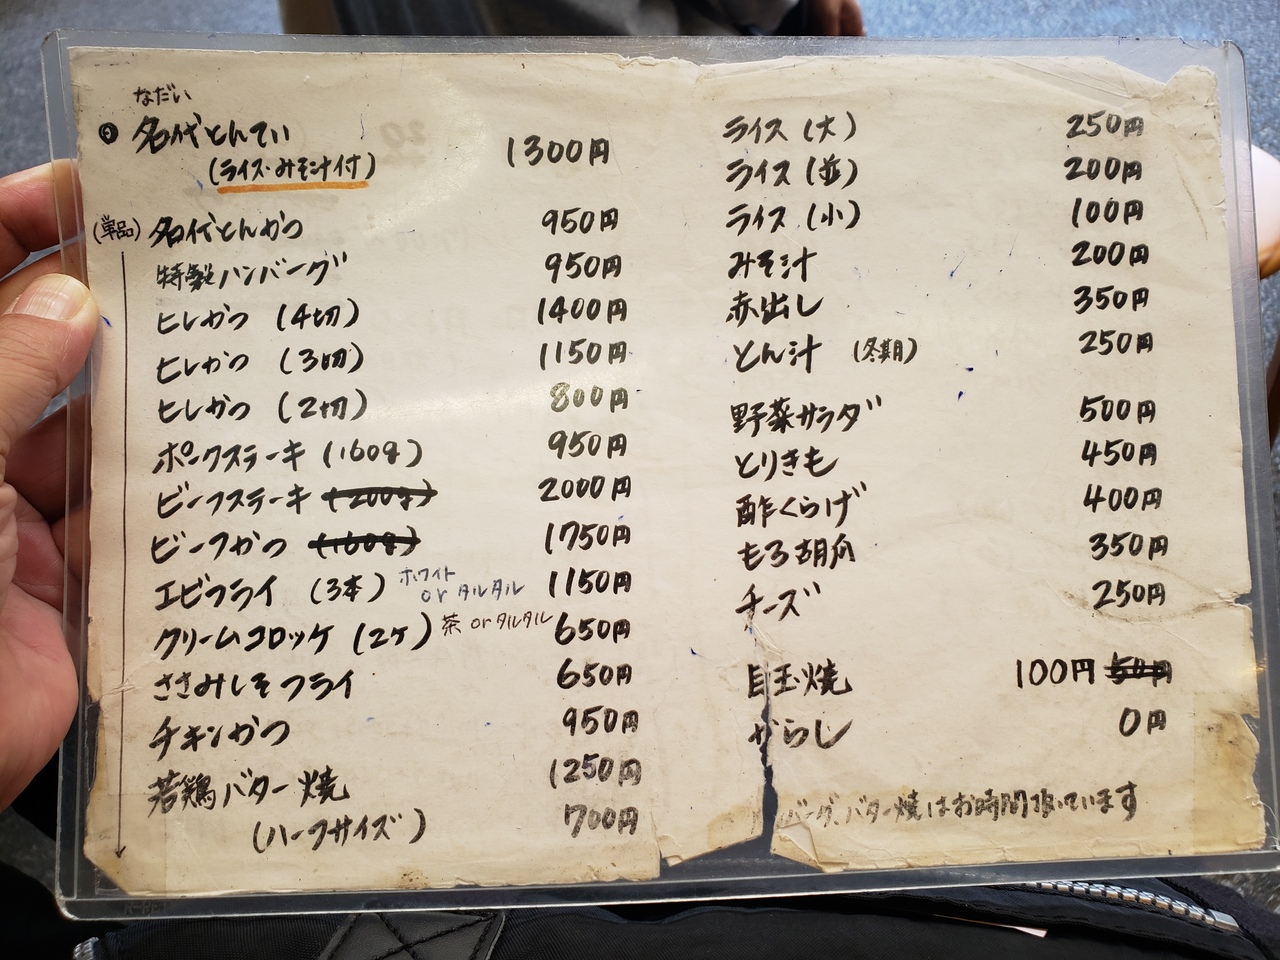 なだい
名代とんてい 1300円
(ライス・みそ汁付)
(単品) 名代とんかつ 950円
特製ハンバーグ 950円
ヒレかつ (4切) 1400円
ヒレかつ (3切) 1150円
ヒレかつ (2切) 800円
ポークステーキ (160g) 950円
ビーフステーキ (200g) 2000円
ビーフかつ (160g) 1750円
エビフライ (3本) ホワイト or タルタル 1150円
クリームコロッケ (2ケ) 茶 or タルタル 650円
ささみしそフライ 650円
チキンかつ 950円
若鶏バター焼 1250円
(ハーフサイズ) 700円
ライス (大) 250円
ライス (並) 200円
ライス (小) 100円
みそ汁 200円
赤出し 350円
とん汁 (冬期) 250円
野菜サラダ 500円
とりきも 450円
酢くらげ 400円
もろ胡瓜 350円
チーズ 250円
目玉焼 100円 50円
からし 0円
バーグ、バター焼はお時間頂いています